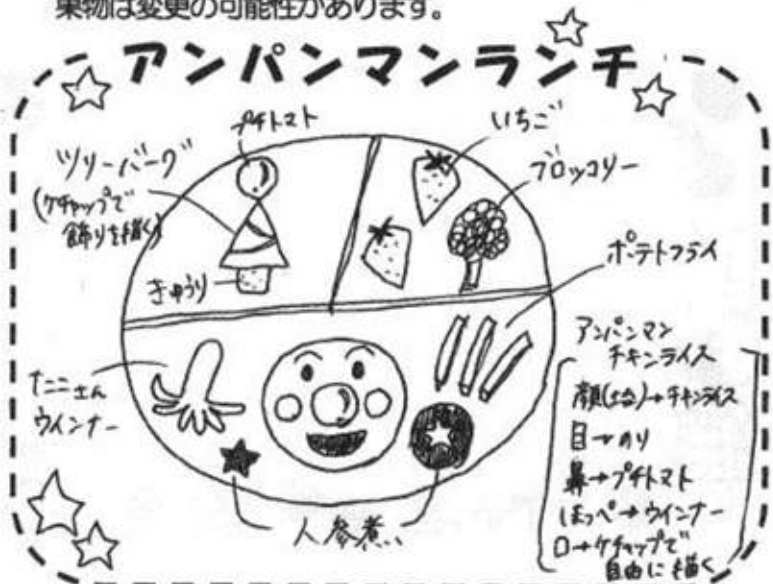 果物は変更の可能性があります。
アンパンマンランチ
プチトマト
ツリーバーグ
(ケチャップで
飾りを描く)
きゅうり
いちご
ブロッコリー
ポテトフライ
タコさん
ウインナー
人参煮
アンパンマン
チキンライス
顔(土台)→チキンライス
目→のり
鼻→プチトマト
ほっぺ→ウインナー
口→ケチャップで
自由に描く